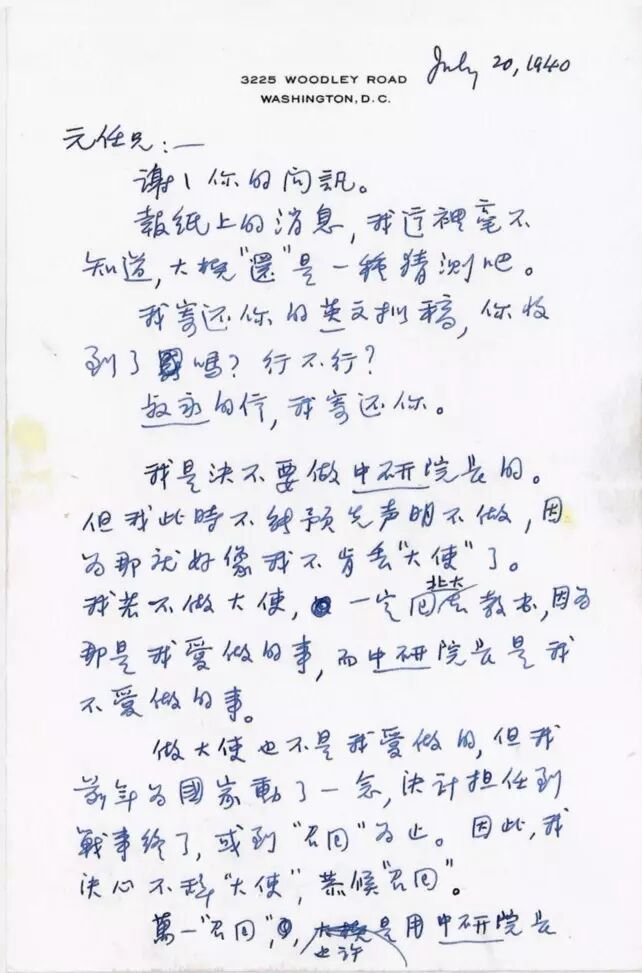 July 20, 1940
3225 WOODLEY ROAD
WASHINGTON, D.C.
元任兄：—
謝丶你的问訊。
報紙上的消息，我这裡毫不
知道，大概"還"是一種猜测吧。
我寄还你的英文拟稿，你收
到了嗎？行不行？
叔永的信，我寄还你。
我是决不要做中研院长的。
但我此時不能预先声明不做，因
为那就好像我不肯丢"大使"了。
我若不做大使，一定回北大教书，因为
那是我爱做的事，而中研院长是我
不爱做的事。
做大使也不是我爱做的，但我
前年为國家動了一念，决计担任到
戰事终了，或到"召回"为止。因此，我
决心不辞"大使"，恭候"召回"。
萬一"召回"，也许是用中研院长